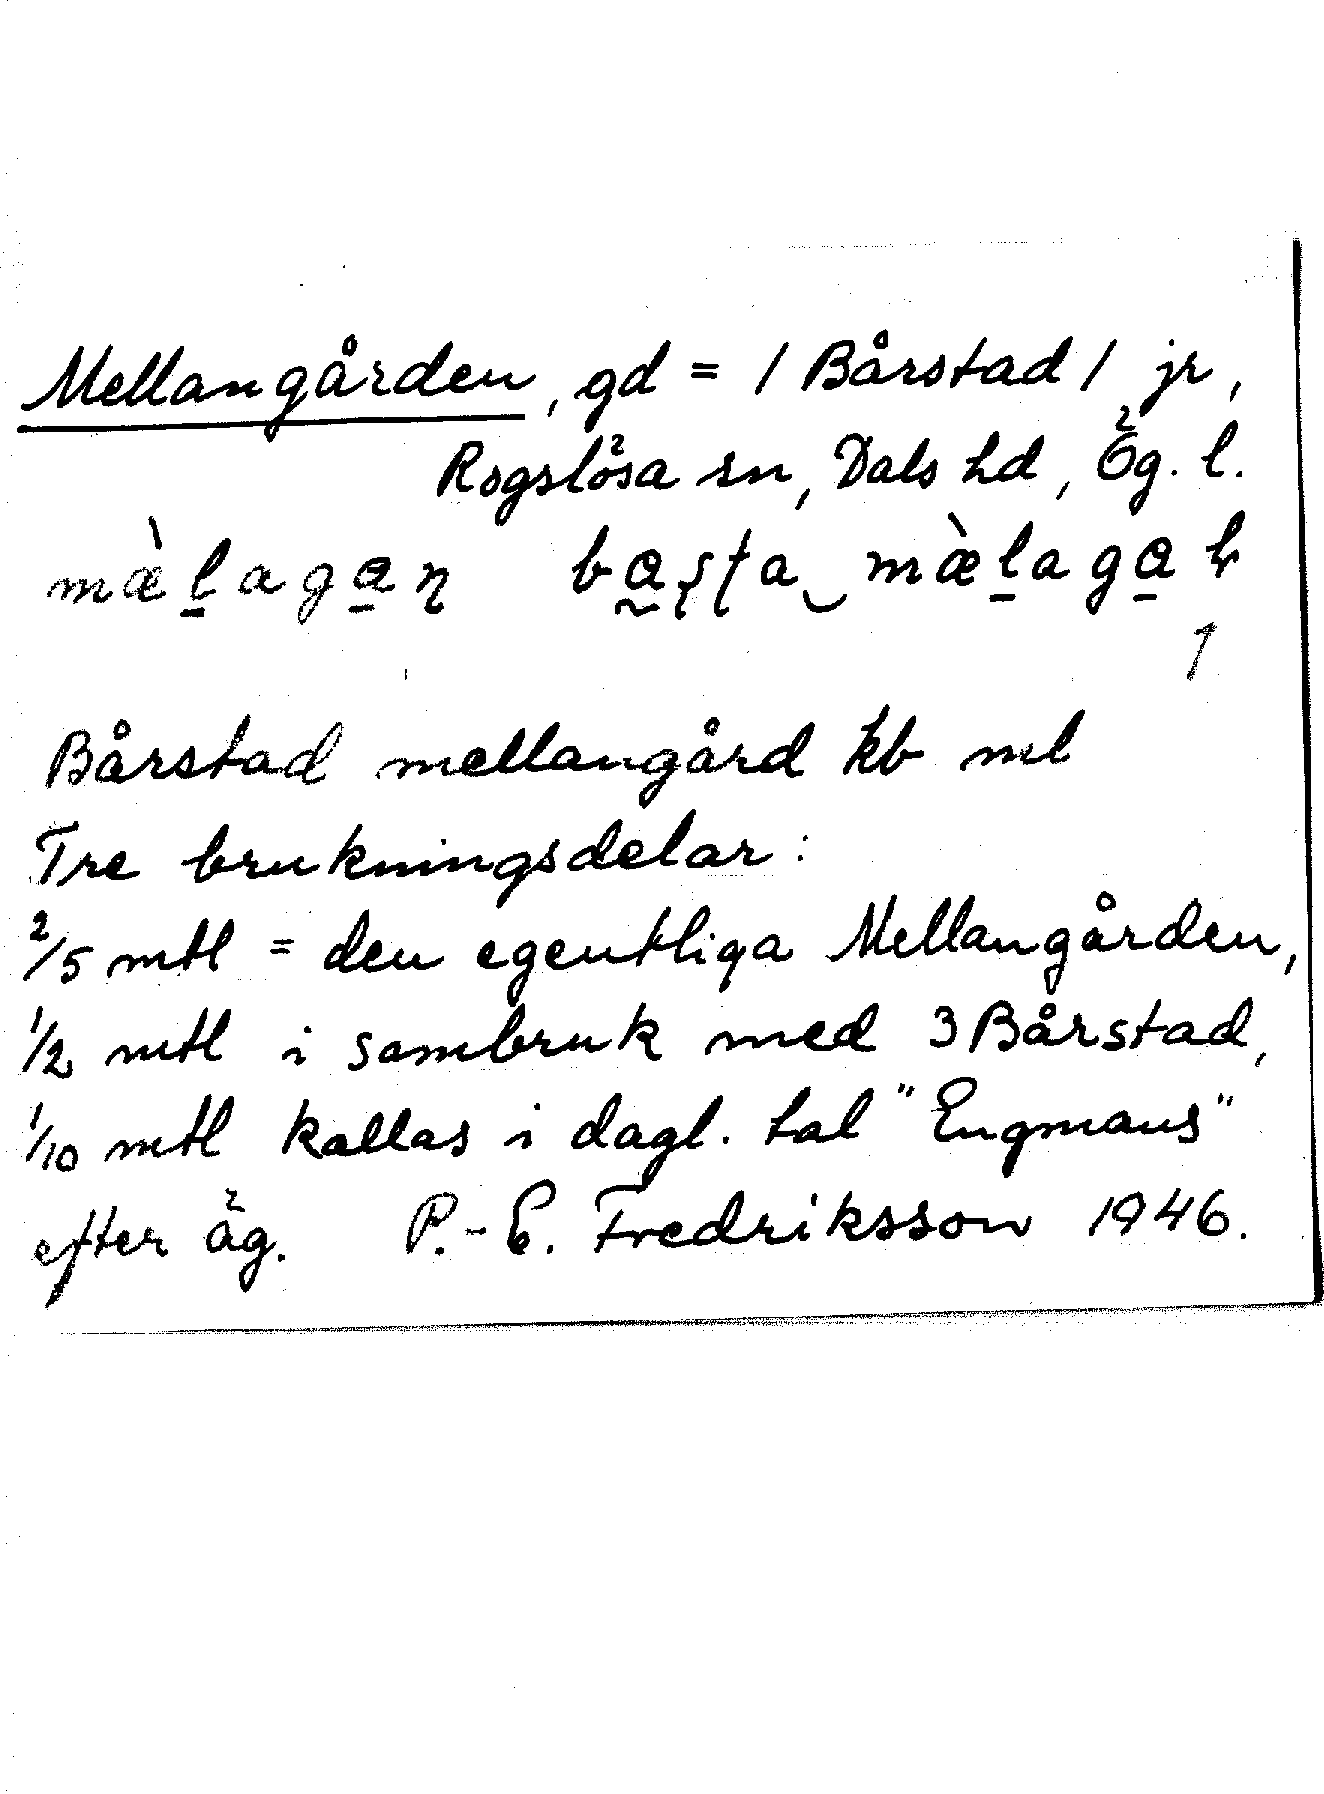 Mellangården, gd = 1 Bårstad 1 jr,
Rogslösa sn, Dals hd, Ög. l.
Bårstad mellangård kb ml
Tre brukningsdelar:
2/5 mtl = den egentliga Mellangården,
1/2 mtl i sambruk med 3 Bårstad,
1/10 mtl kallas i dagl. tal "Engmans"
efter äg. P.-E. Fredriksson 1946.